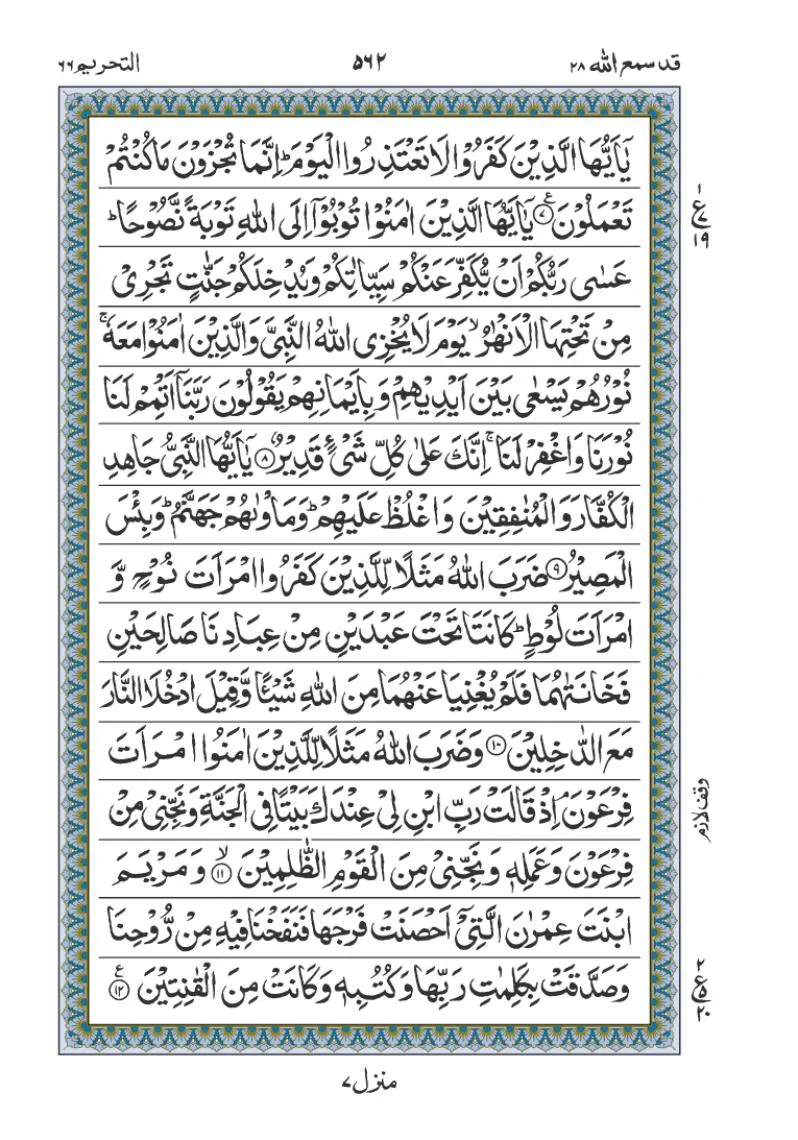 قد سمع الله ۲۸
۵۶۲
التحریم ۶۶
یٰۤاَیُّهَا الَّذِیْنَ كَفَرُوْا لَا تَعْتَذِرُوا الْیَوْمَ ؕ اِنَّمَا تُجْزَوْنَ مَا كُنْتُمْ
تَعْمَلُوْنَ ﴿۷﴾ یٰۤاَیُّهَا الَّذِیْنَ اٰمَنُوْا تُوْبُوْۤا اِلَی اللّٰهِ تَوْبَةً نَّصُوْحًا ؕ
عَسٰی رَبُّكُمْ اَنْ یُّكَفِّرَ عَنْكُمْ سَیِّاٰتِكُمْ وَ یُدْخِلَكُمْ جَنّٰتٍ تَجْرِیْ
مِنْ تَحْتِهَا الْاَنْهٰرُ ۙ یَوْمَ لَا یُخْزِی اللّٰهُ النَّبِیَّ وَ الَّذِیْنَ اٰمَنُوْا مَعَهٗ ۚ
نُوْرُهُمْ یَسْعٰی بَیْنَ اَیْدِیْهِمْ وَ بِاَیْمَانِهِمْ یَقُوْلُوْنَ رَبَّنَاۤ اَتْمِمْ لَنَا
نُوْرَنَا وَ اغْفِرْ لَنَا ۚ اِنَّكَ عَلٰی كُلِّ شَیْءٍ قَدِیْرٌ ﴿۸﴾ یٰۤاَیُّهَا النَّبِیُّ جَاهِدِ
الْكُفَّارَ وَ الْمُنٰفِقِیْنَ وَ اغْلُظْ عَلَیْهِمْ ؕ وَ مَاْوٰىهُمْ جَهَنَّمُ ؕ وَ بِئْسَ
الْمَصِیْرُ ﴿۹﴾ ضَرَبَ اللّٰهُ مَثَلًا لِّلَّذِیْنَ كَفَرُوا امْرَاَتَ نُوْحٍ وَّ
امْرَاَتَ لُوْطٍ ؕ كَانَتَا تَحْتَ عَبْدَیْنِ مِنْ عِبَادِنَا صَالِحَیْنِ
فَخَانَتٰهُمَا فَلَمْ یُغْنِیَا عَنْهُمَا مِنَ اللّٰهِ شَیْـًٔا وَّ قِیْلَ ادْخُلَا النَّارَ
مَعَ الدّٰخِلِیْنَ ﴿۱۰﴾ وَ ضَرَبَ اللّٰهُ مَثَلًا لِّلَّذِیْنَ اٰمَنُوا امْرَاَتَ
فِرْعَوْنَ ۘ اِذْ قَالَتْ رَبِّ ابْنِ لِیْ عِنْدَكَ بَیْتًا فِی الْجَنَّةِ وَ نَجِّنِیْ مِنْ
فِرْعَوْنَ وَ عَمَلِهٖ وَ نَجِّنِیْ مِنَ الْقَوْمِ الظّٰلِمِیْنَ ۙ﴿۱۱﴾ وَ مَرْیَمَ
ابْنَتَ عِمْرٰنَ الَّتِیْۤ اَحْصَنَتْ فَرْجَهَا فَنَفَخْنَا فِیْهِ مِنْ رُّوْحِنَا
وَ صَدَّقَتْ بِكَلِمٰتِ رَبِّهَا وَ كُتُبِهٖ وَ كَانَتْ مِنَ الْقٰنِتِیْنَ ﴿۱۲﴾
۱
ع ۷
۱۹
وقف لازم
۲
ع ۵
۲۰
منزل ۷